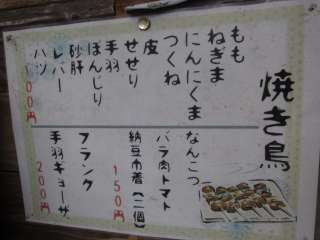 焼き鳥
もも
ねぎま
にんにくま
つくね
皮
せせり
手羽
ぼんじり
砂肝
レバー
ハツ
100円
なんこつ
バラ肉トマト
納豆巾着(二個)
150円
フランク
手羽ギョーザ
200円